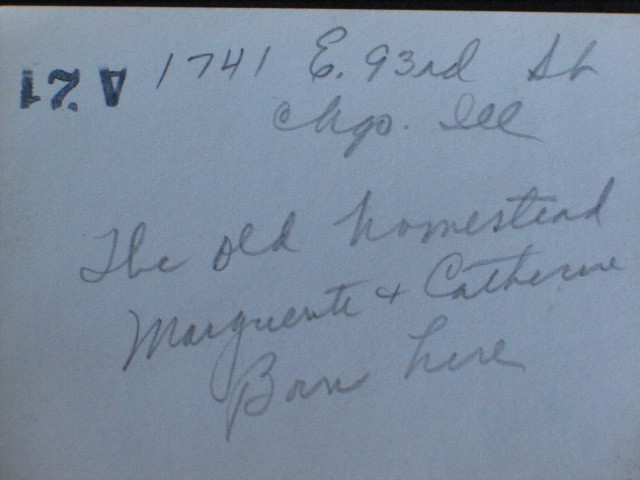 1741 E. 93rd St
Chgo. Ill
The old homestead
Marguerite + Catherine
Born here